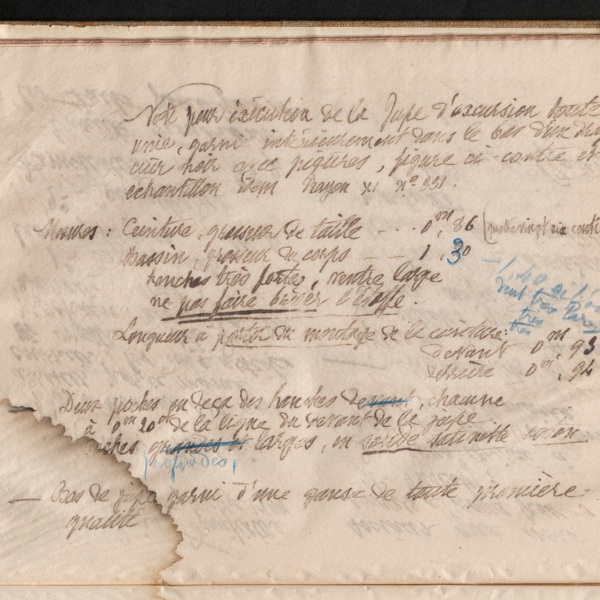 Note pour éxécution de la Jupe d'excursion toute
unie, garni intérieurement dans le bas d'un
cuir noir avec piqûres, figure ci-contre et
échantillon idem Rayon n° 951.
Mesures : Ceinture, grosseur de taille --- 0m,86 (quatre vingt six cent
Bassin, grosseur de corps --- 1, 30
hanches très fortes, ventre large
ne pas faire brider l'étoffe.
1,40
très large
très
très
Longueur à partir du montage de la ceinture:
Devant 0m, 93
Derrière 0m, 94
Deux poches en deça des hanches devant, chacune
à 0m 20 de la ligne du devant de la jupe
poches grandes et larges, en satinette
profondes,
— Bas de jupe garni d'une ganse de toute première
qualité